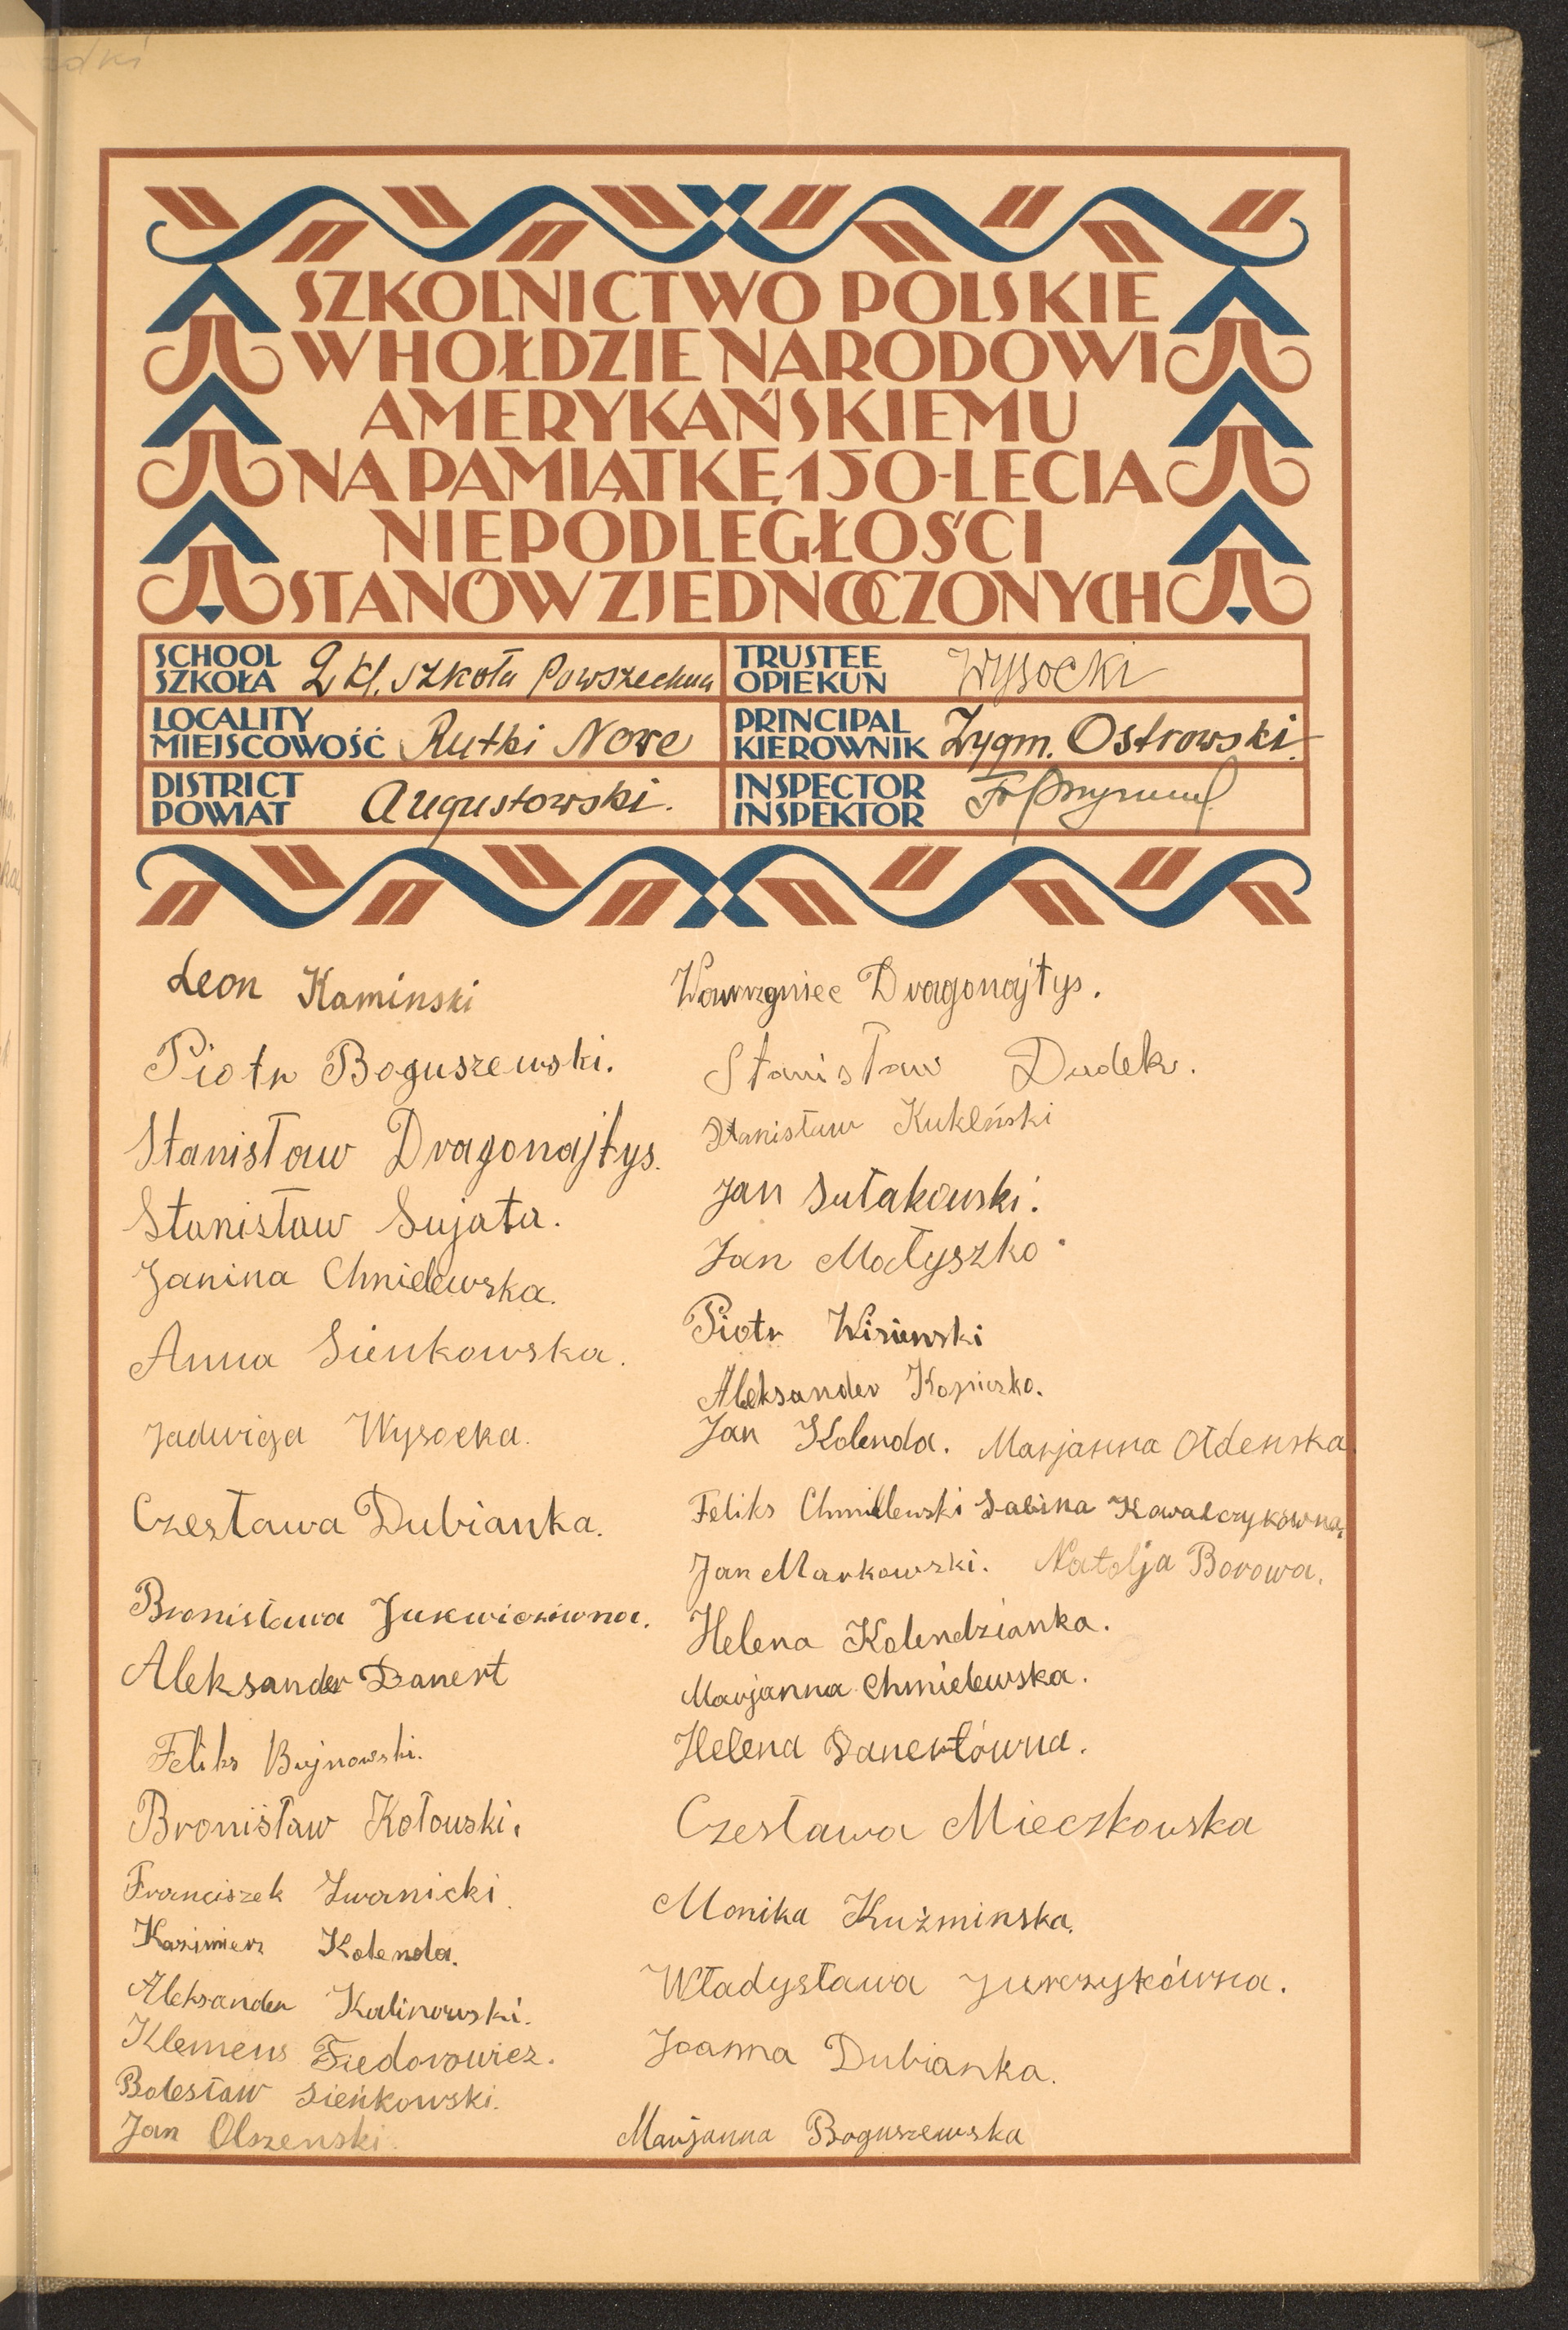 SZKOLNICTWO POLSKIE
W HOŁDZIE NARODOWI
AMERYKAŃSKIEMU
NA PAMIĄTKĘ 150-LECIA
NIEPODLEGŁOŚCI
STANÓW ZJEDNOCZONYCH
SCHOOL
SZKOŁA 2 kl. szkoła Powszechna
TRUSTEE
OPIEKUN Wysocki
LOCALITY
MIEJSCOWOŚĆ Rutki Nowe
PRINCIPAL
KIEROWNIK Zygm. Ostrowski.
DISTRICT
POWIAT Augustowski.
INSPECTOR
INSPEKTOR
Leon Kaminski
Piotr Boguszewski.
Stanisław Dragonajtys.
Stanisław Sujata.
Janina Chmielewska.
Anna Sienkowska.
Jadwiga Wysocka.
Czesława Dubianka.
Bronisława
Aleksander Danert
Feliks Bujnowski.
Bronisław Kotowski.
Franciszek Iwanicki.
Kazimierz Kolenda.
Aleksander Kalinowski.
Klemens Fiedorowicz.
Bolesław Sieńkowski.
Jan Olszenski.
Wawrzyniec Dragonajtys.
Stanisław Dudek.
Stanisław Kukleński
Jan Sutakowski.
Jan Małyszko.
Piotr
Aleksander Kopiczko.
Jan Kolenda. Marjanna Ołdenska
Feliks Chmielewski Sabina Kowalczykówna.
Jan Markowski. Natolja Borowa.
Helena Kolendzianka.
Marjanna Chmielewska.
Helena Danertówna.
Czesława Mieczkowska
Monika Kuźminska.
Władysława Jurczykówna.
Joanna Dubianka.
Marjanna Boguszewska